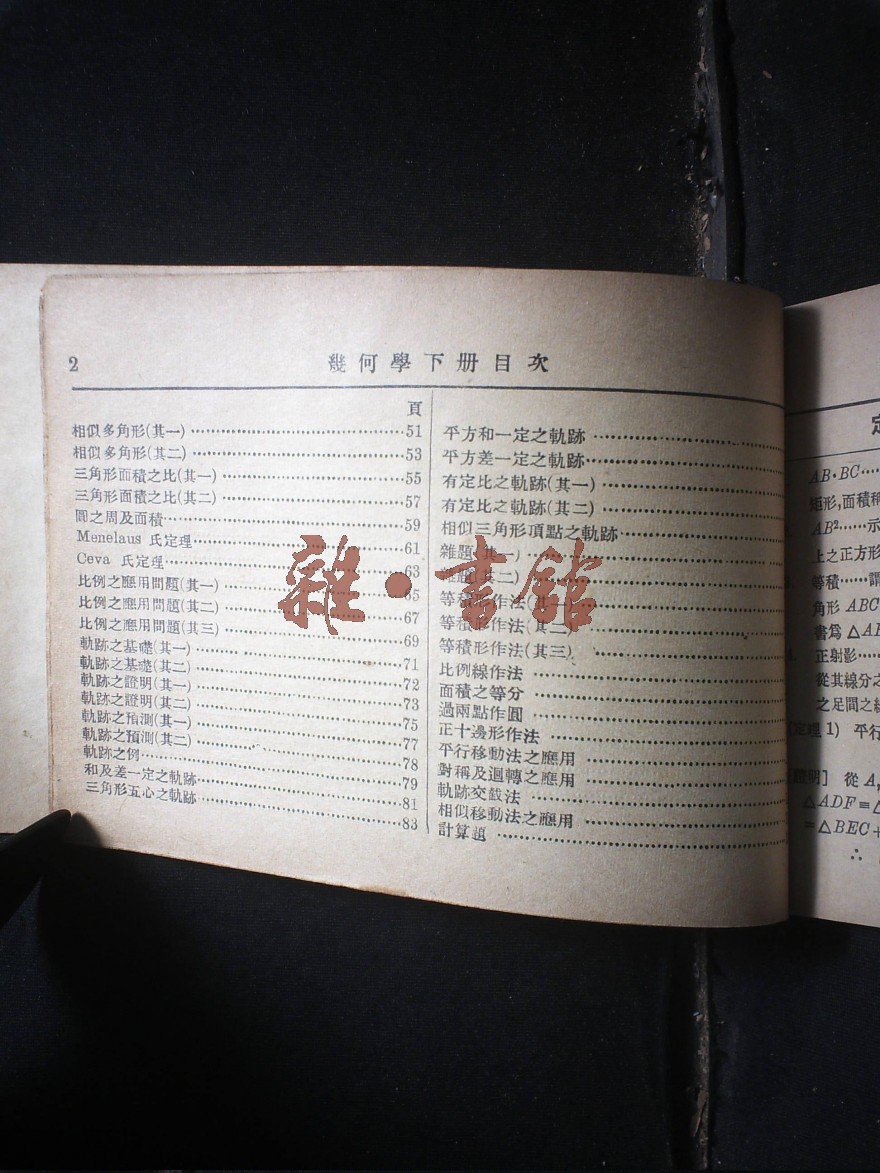 2
幾何學下册目次
頁
相似多角形(其一)…51
相似多角形(其二)…53
三角形面積之比(其一)…55
三角形面積之比(其二)…57
圓之周及面積…59
Menelaus 氏定理…61
Ceva 氏定理…63
比例之應用問題(其一)…65
比例之應用問題(其二)…67
比例之應用問題(其三)…69
軌跡之基礎(其一)…71
軌跡之基礎(其二)…72
軌跡之證明(其一)…73
軌跡之證明(其二)…75
軌跡之預測(其一)…77
軌跡之預測(其二)…78
軌跡之例…79
和及差一定之軌跡…81
三角形五心之軌跡…83
平方和一定之軌跡
平方差一定之軌跡
有定比之軌跡(其一)
有定比之軌跡(其二)
相似三角形項點之軌跡
雜題(其一)
雜題(其二)
等積形作法(其一)
等積形作法(其二)
等積形作法(其三)
比例線作法
面積之等分
過兩點作圓
正十邊形作法
平行移動法之應用
對稱及迴轉之應用
軌跡交截法
相似移動法之應用
計算題
雜·書館
定
AB·BC……
矩形,面積稱
AB²……示
上之正方形
等積……謂
角形 ABC
書爲 △AB
正射影……
從其線分之
之足間之線
定理 1) 平行
證明] 從 A,
△ADF≡△
=△BEC+
∴